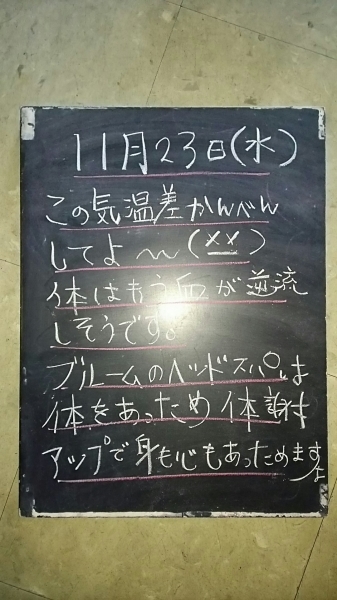 11月23日(水)
この気温差かんべん
してよ〜(××)
体はもう血が逆流
しそうです。
ブルームのヘッドスパは
体をあっため 体謝
アップで身も心もあっためますよ